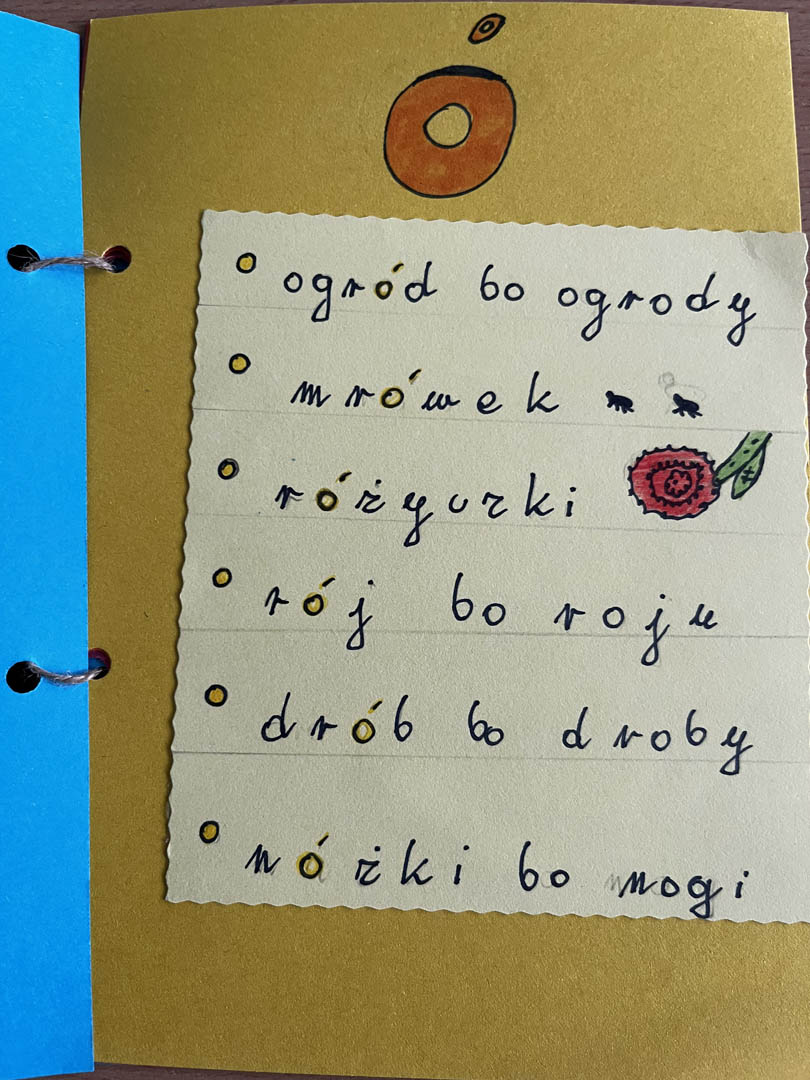 ó
ogród bo ogrody
mrówek
różyczki
rój bo roju
drób bo droby
nóżki bo nogi